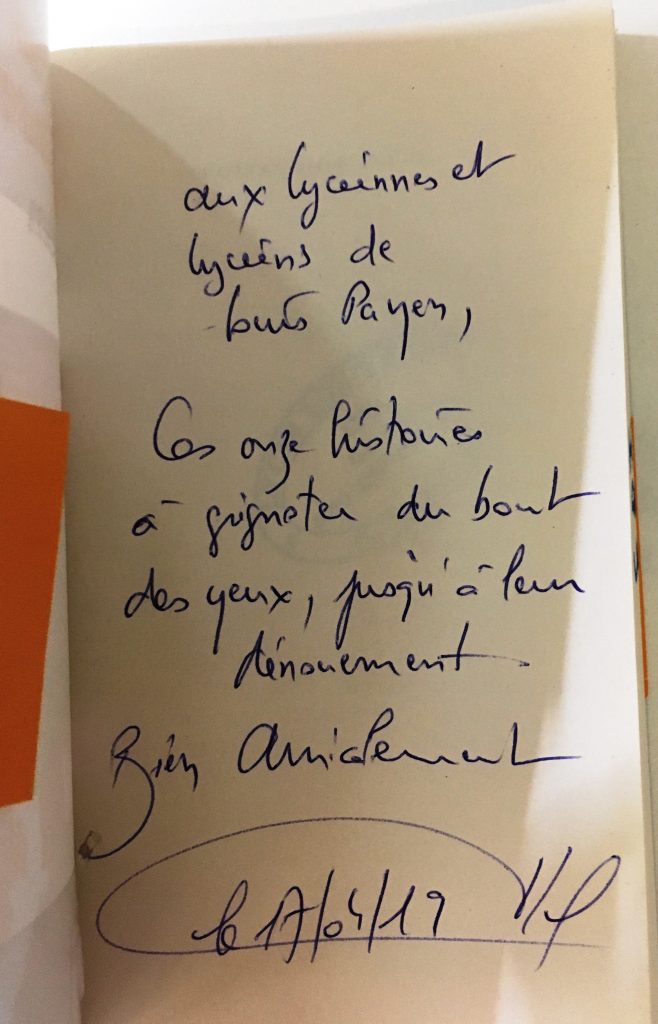 aux lycéennes et
lycéens de
Louis Payen,
Ces onze histoires
à grignoter du bout
des yeux, jusqu'à leur
dénouement
Bien Amicalement
le 17/04/19